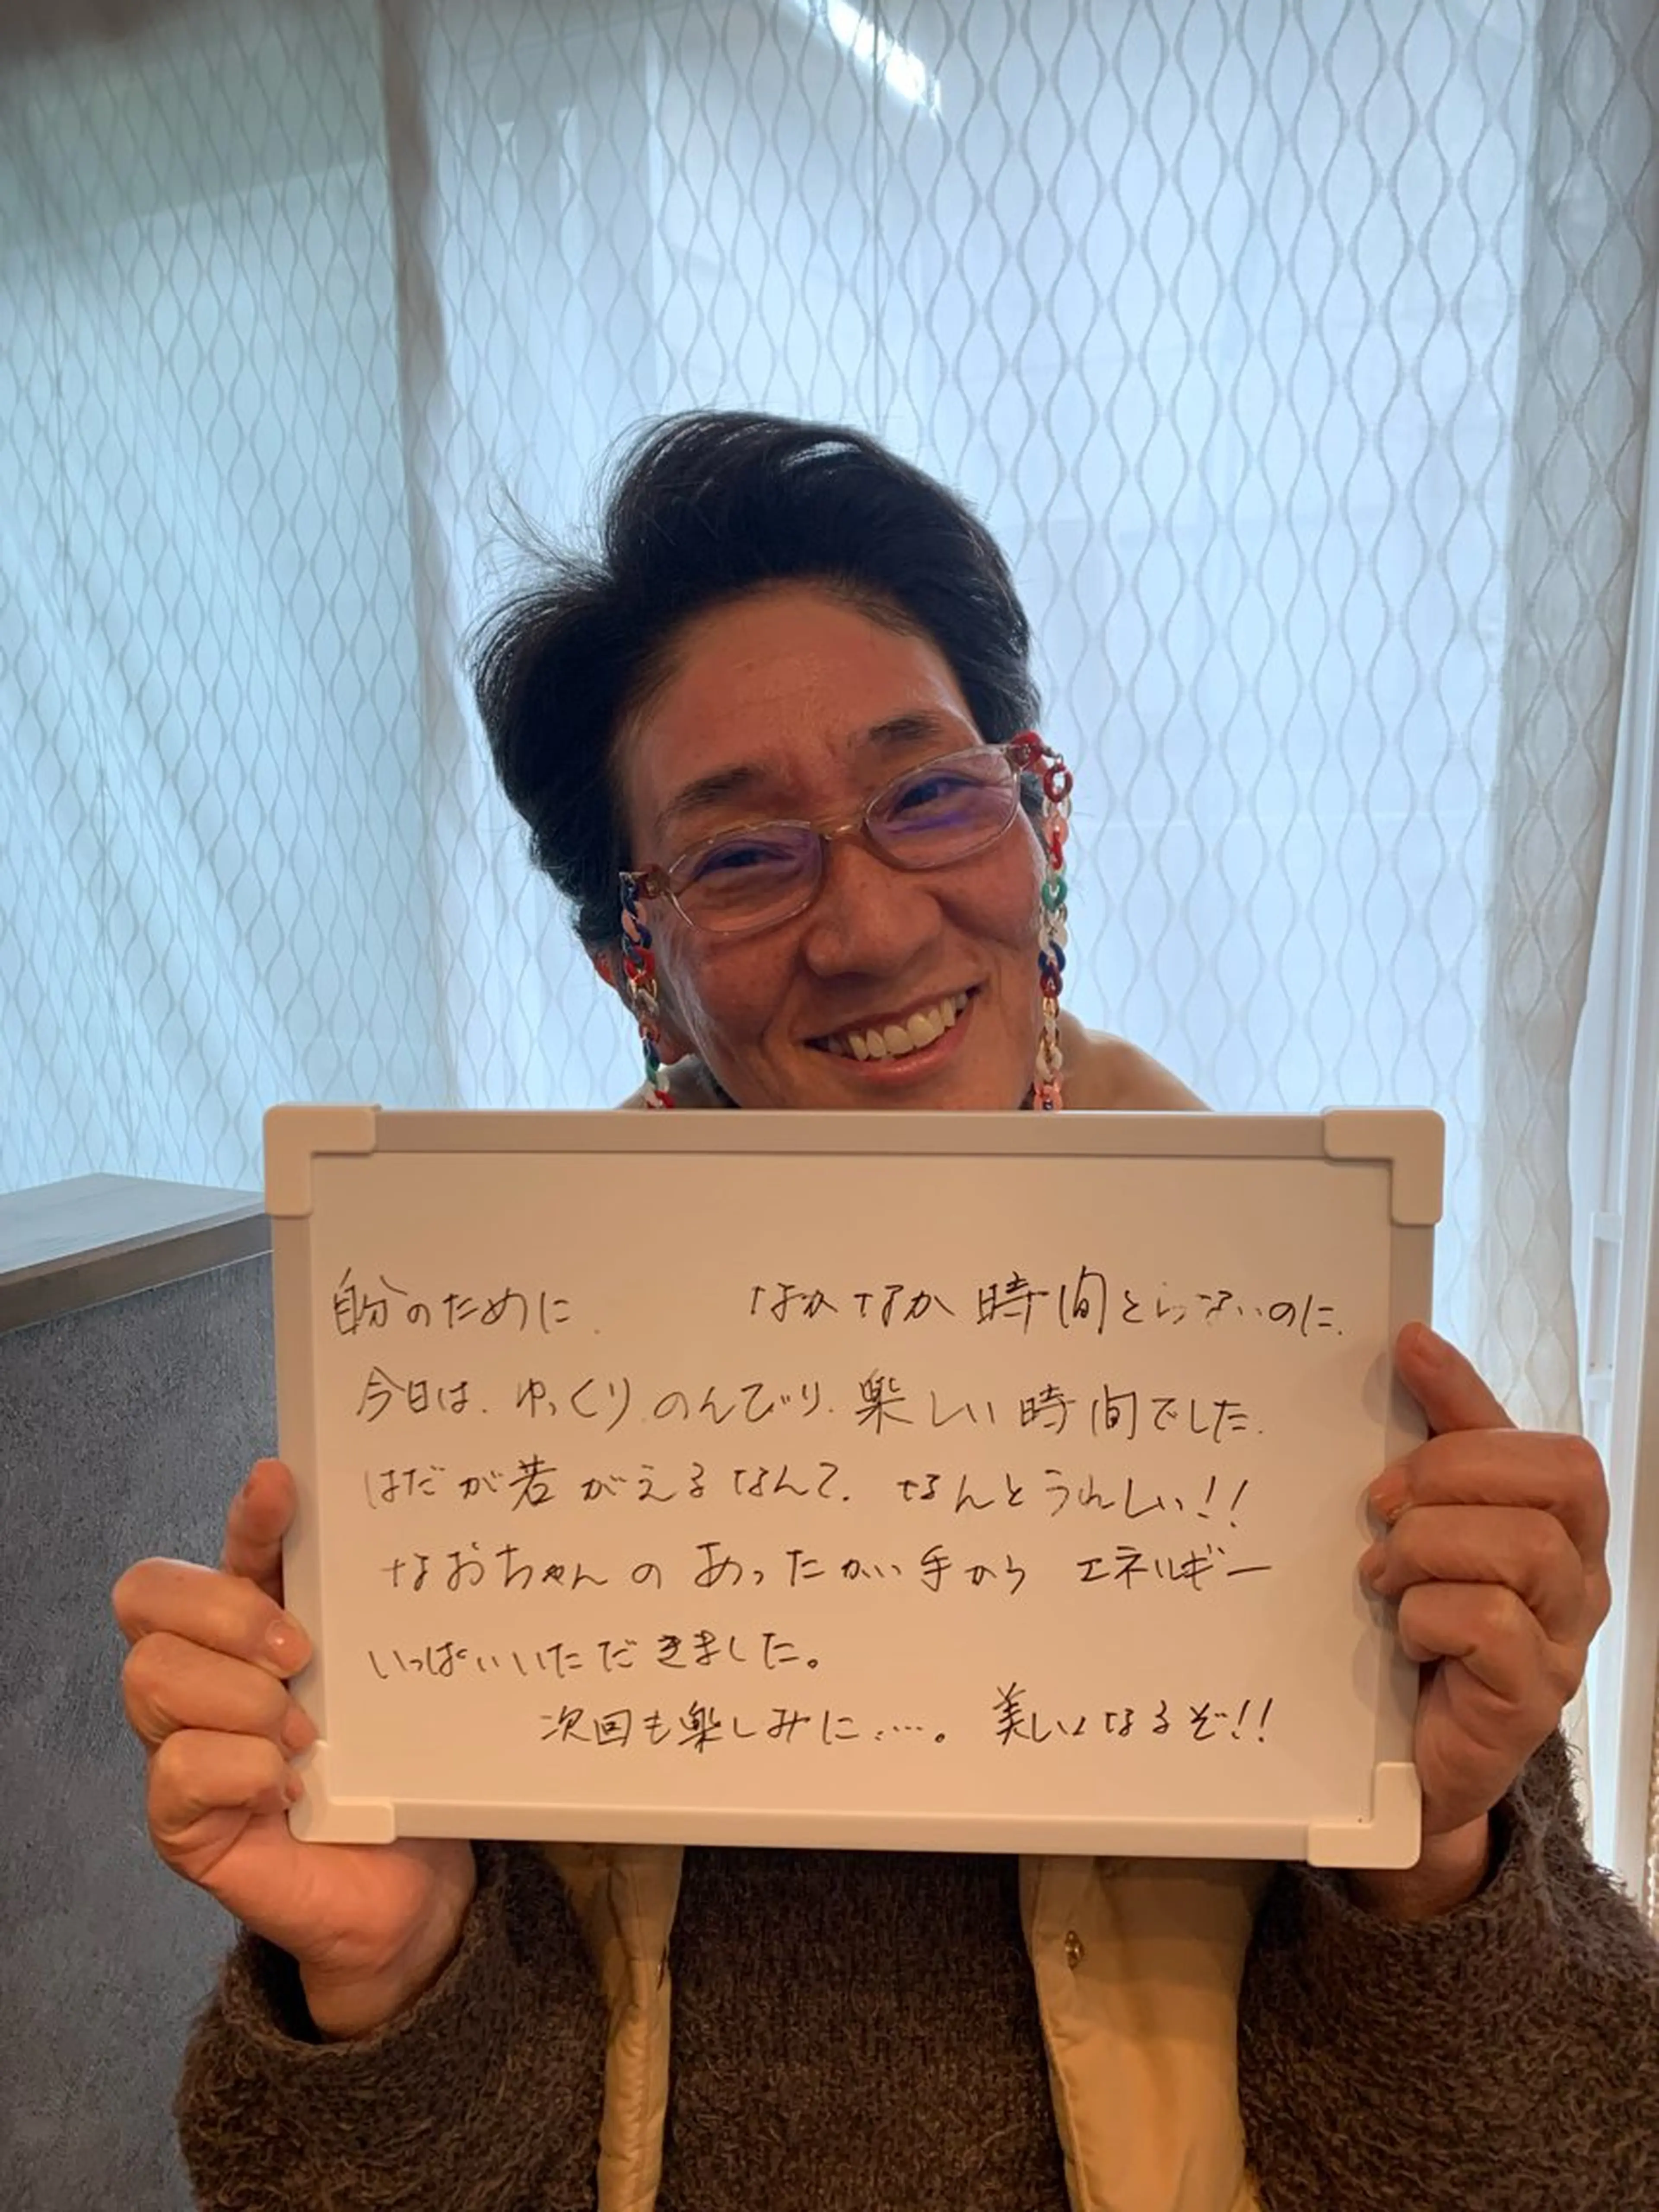 自分のために なかなか時間とらないのに、
今日は、ゆっくり、のんびり、楽しい時間でした。
はだが若がえるなんて、なんとうれしい!!
なおちゃんの あったかい手から エネルギー
いっぱいいただきました。
次回も楽しみに……。 美しくなるぞ!!